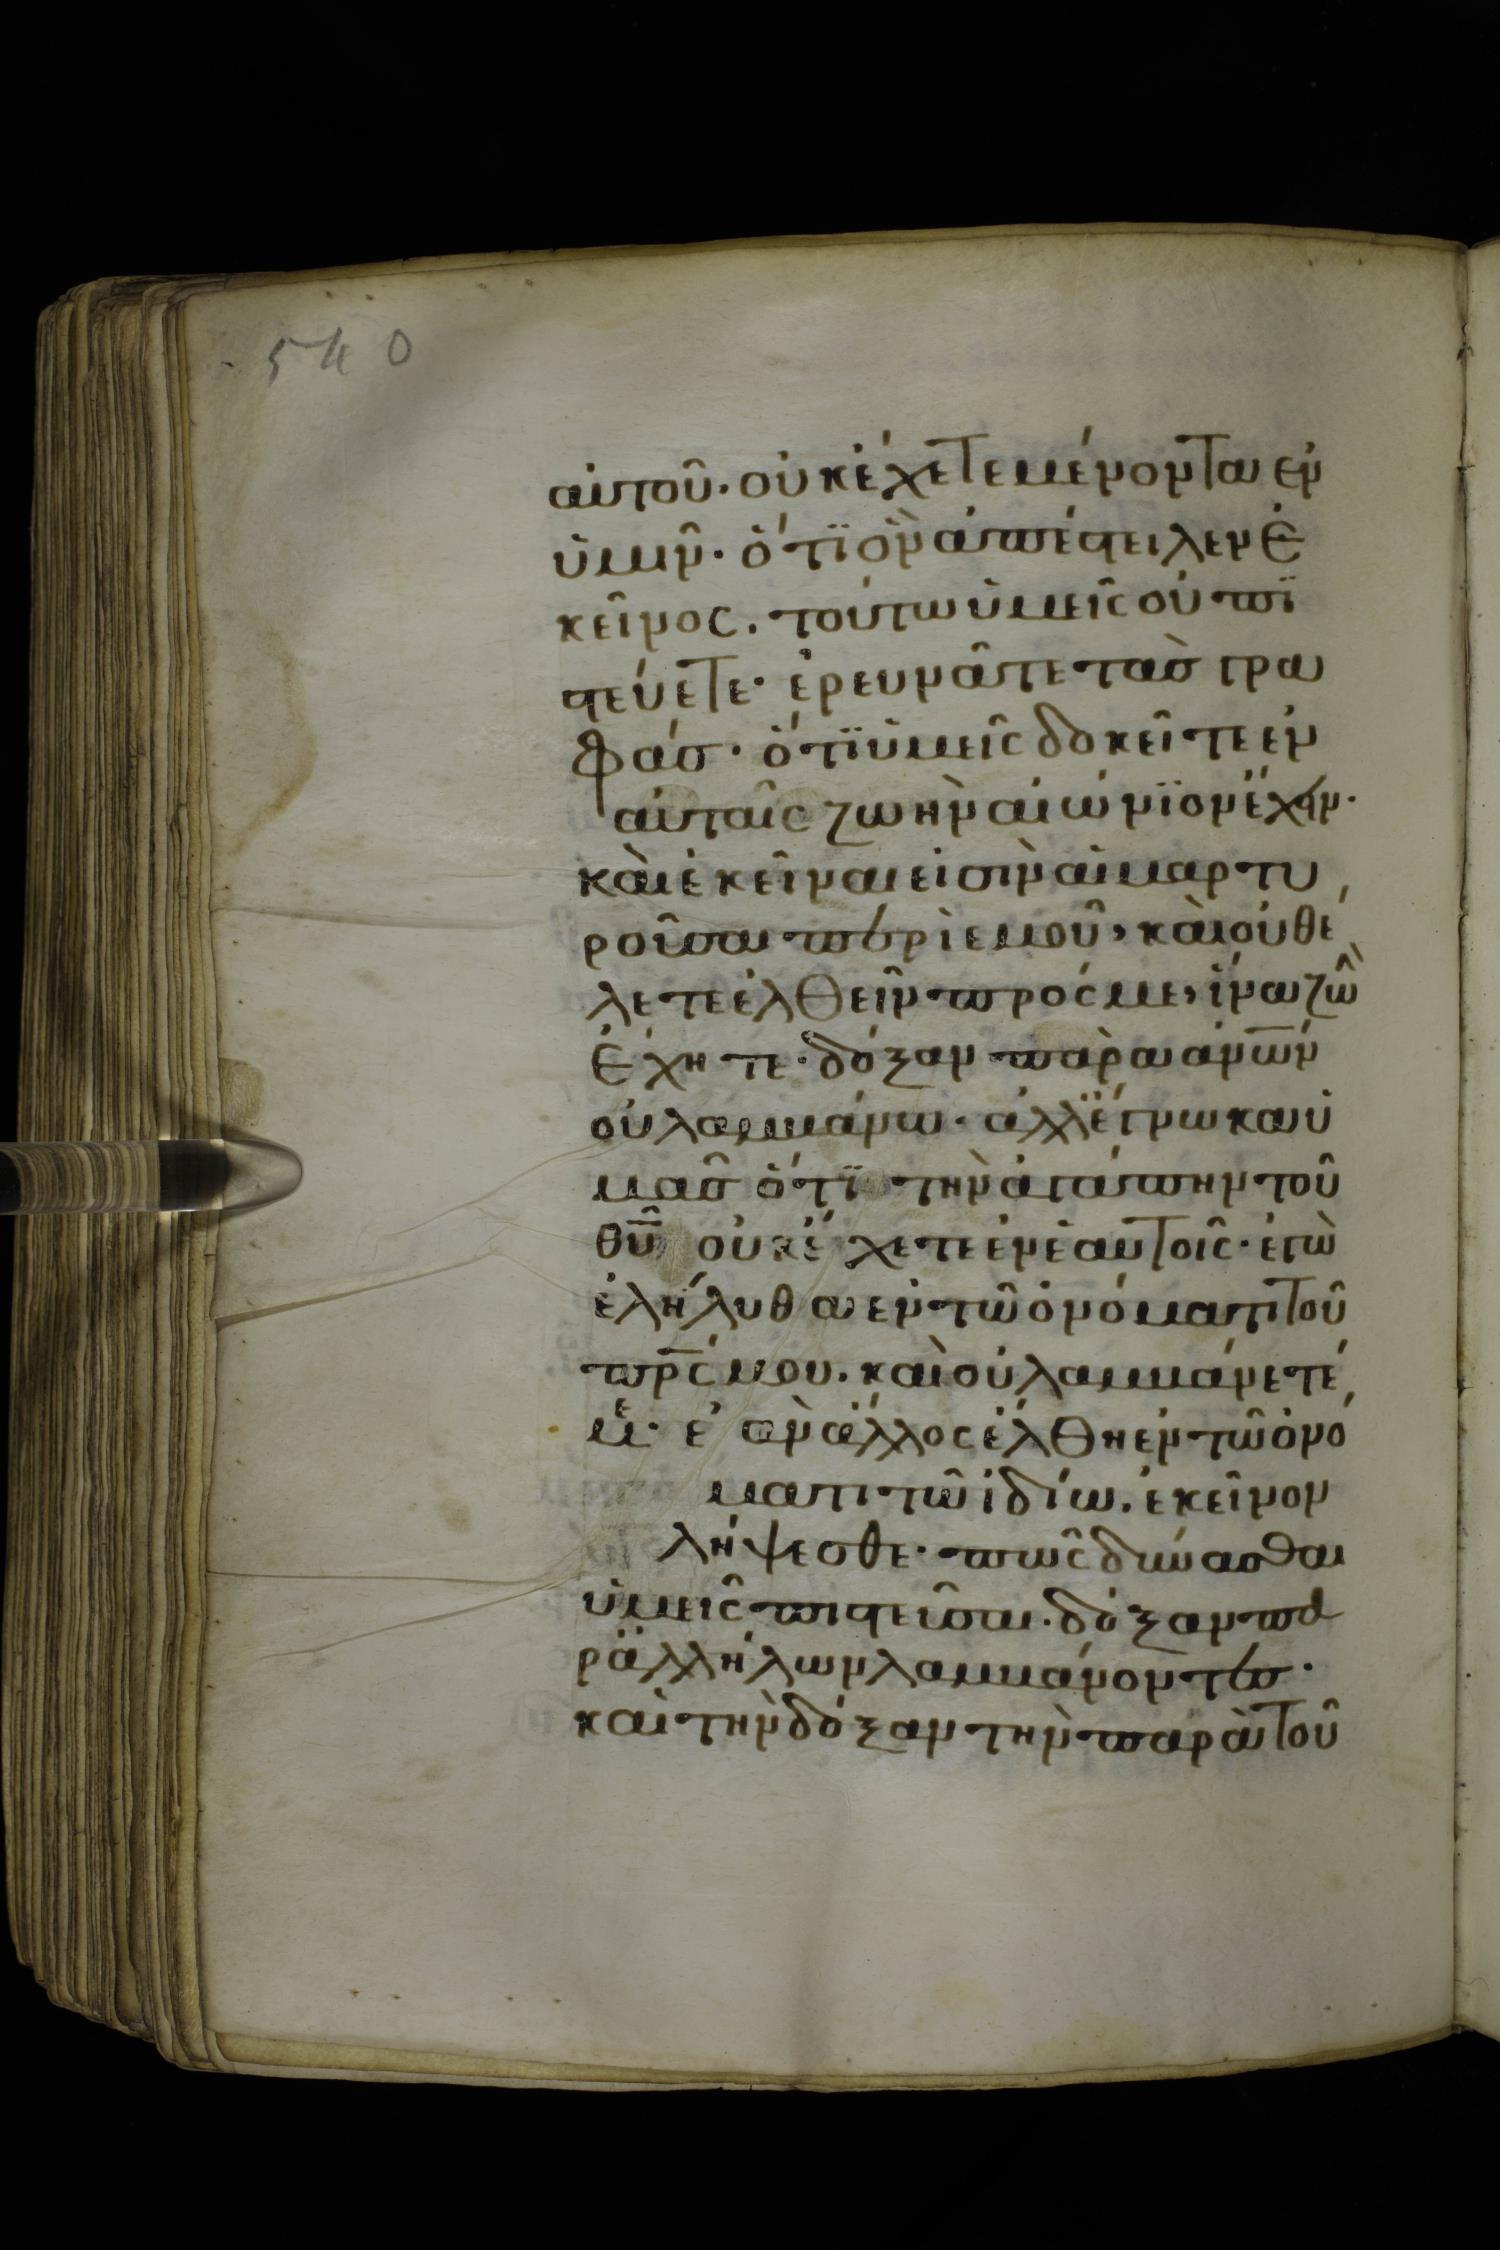 540
αὐτοῦ· οὐκ ἔχετε μένοντα ἐν
ὑμῖν· ὅτϊ ὃν ἀπέστειλεν ἐ
κεῖνος. τούτω ὑμεῖς οὐ πϊ
στεύετε· ἐρευνᾶτε τὰσ γρα
φάσ· ὅτϊ ὑμεῖς δοκεῖτε ἐν
αὐταῖς ζωὴν αἰώνϊον ἔχειν·
καὶ ἐκεῖναι εἰσιν αἱ μαρτυ
ροῦσαι περὶ ἐμοῦ, καὶ οὐ θέ
λετε ἐλθεῖν πρός με, ἵνα ζωὴν
ἔχητε· δόξαν παρὰ ἀν̅ων
οὐ λαμμάνω· ἀλλ' ἔγνωκα ὑ
μᾶσ ὅτϊ τὴν ἀγάπην τοῦ
θ̅υ̅ οὐκ ἔχετε ἐν ἑαυτοῖς· ἐγὼ
ἐλήλυθα ἐν τῶ ὀνόματι τοῦ
π̅ρ̅ς μου. καὶ οὐ λαμμάνετέ
με· ἐὰν ἄλλος ἔλθη ἐν τῶ ὀνό
ματι τῶ ἰδίω. ἐκεῖνον
λήψεσθε· πῶς δύνασθαι
ὑμεῖς πιστεῦσαι. δόξαν πα
ρ' ἀλλήλων λαμμάνοντεσ·
καὶ τὴν δόξαν τὴν παρὰ τοῦ